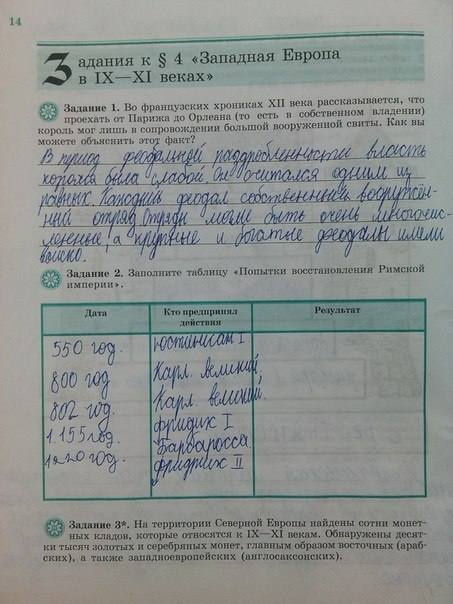 14
Задания к § 4 «Западная Европа
в IX—XI веках»
Задание 1. Во французских хрониках XII века рассказывается, что
проехать от Парижа до Орлеана (то есть в собственном владении)
король мог лишь в сопровождении большой вооруженной свиты. Как вы
можете объяснить этот факт?
В период феодальной раздробленности власть
короля была слабой. Он считался одним из
равных. Каждый феодал собственный вооружён-
ный отряд. Отряды могли быть очень многочис-
ленные, а крупные и богатые феодалы имели
войско.
Задание 2. Заполните таблицу «Попытки восстановления Римской
империи».
Дата Кто предпринял действия Результат
550 год. Юстиниан I
800 год Карл великий.
802 год. Карл великий.
1155 год. Фридих I
Барбаросса
1220 год. Фридрих II
Задание 3*. На территории Северной Европы найдены сотни монет-
ных кладов, которые относятся к IX—XI векам. Обнаружены десят-
ки тысяч золотых и серебряных монет, главным образом восточных (араб-
ских), а также западноевропейских (англосаксонских).